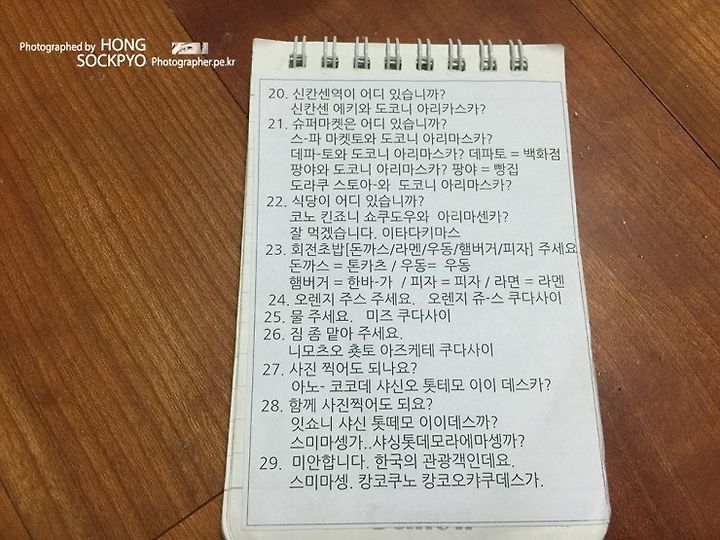 Photographed by HONG
SOCKPYO Photographer.pe.kr
20. 신칸센역이 어디 있습니까?
신칸센 에키와 도코니 아리카스카?
21. 슈퍼마켓은 어디 있습니까?
스-파 마켓토와 도코니 아리마스카?
데파-토와 도코니 아리마스카? 데파토 = 백화점
팡야와 도코니 아리마스카? 팡야 = 빵집
도라쿠 스토아-와 도코니 아리마스카?
22. 식당이 어디 있습니까?
코노 킨죠니 쇼쿠도우와 아리마센카?
잘 먹겠습니다. 이타다키마스
23. 회전초밥[돈까스/라멘/우동/햄버거/피자] 주세요
돈까스 = 톤카츠 / 우동= 우동
햄버거 = 한바-가 / 피자 = 피자 / 라면 = 라멘
24. 오렌지 주스 주세요. 오렌지 쥬-스 쿠다사이
25. 물 주세요. 미즈 쿠다사이
26. 짐 좀 맡아 주세요.
니모츠오 춋토 아즈케테 쿠다사이
27. 사진 찍어도 되나요?
아노- 코코데 샤신오 톳테모 이이 데스카?
28. 함께 사진찍어도 되요?
잇쇼니 샤신 톳떼모 이이데스까?
스미마셍가..샤싱톳데모라에마셍까?
29. 미안합니다. 한국의 관광객인데요.
스미마셍. 캉코쿠노 캉코오캬쿠데스가.